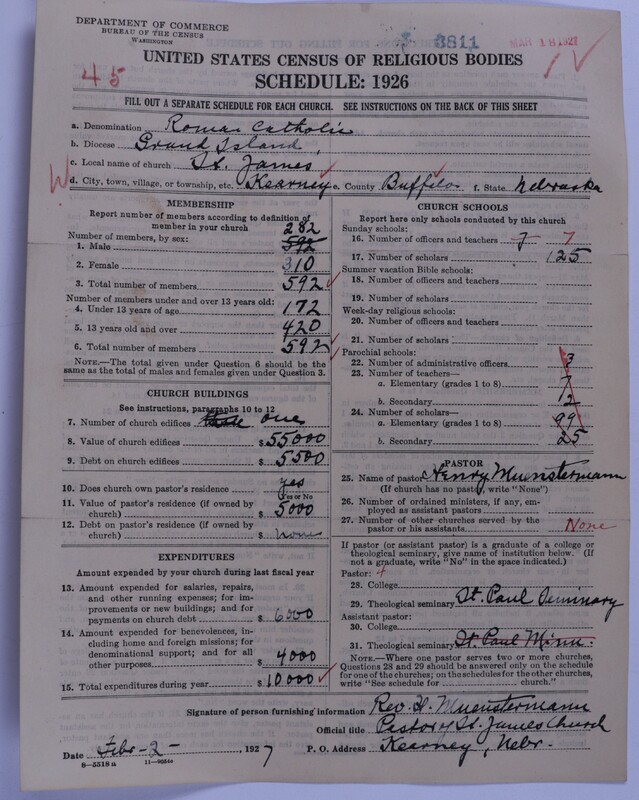 DEPARTMENT OF COMMERCE
BUREAU OF THE CENSUS
WASHINGTON
3811
MAR 18 1927
45
UNITED STATES CENSUS OF RELIGIOUS BODIES
SCHEDULE: 1926
FILL OUT A SEPARATE SCHEDULE FOR EACH CHURCH. SEE INSTRUCTIONS ON THE BACK OF THIS SHEET
a. Denomination Roman Catholic
b. Diocese Grand Island,
c. Local name of church St. James
W d. City, town, village, or township, etc. Kearney e. County Buffalo f. State Nebraska
MEMBERSHIP
Report number of members according to definition of member in your church
Number of members, by sex: 282
1. Male 592
2. Female 310
3. Total number of members 592
Number of members under and over 13 years old:
4. Under 13 years of age 172
5. 13 years old and over 420
6. Total number of members 592
NOTE.—The total given under Question 6 should be the same as the total of males and females given under Question 3.
CHURCH BUILDINGS
See instructions, paragraphs 10 to 12
7. Number of church edifices one
8. Value of church edifices $55000
9. Debt on church edifices $5500
10. Does church own pastor's residence yes
Yes or No
11. Value of pastor's residence (if owned by church) $5000
12. Debt on pastor's residence (if owned by church) $none
EXPENDITURES
Amount expended by your church during last fiscal year
13. Amount expended for salaries, repairs, and other running expenses; for improvements or new buildings; and for payments on church debt $6000
14. Amount expended for benevolences, including home and foreign missions; for denominational support; and for all other purposes $4000
15. Total expenditures during year $10000
CHURCH SCHOOLS
Report here only schools conducted by this church
Sunday schools:
16. Number of officers and teachers 7 7
17. Number of scholars 125
Summer vacation Bible schools:
18. Number of officers and teachers
19. Number of scholars
Week-day religious schools:
20. Number of officers and teachers
21. Number of scholars
Parochial schools:
22. Number of administrative officers 3
23. Number of teachers—
a. Elementary (grades 1 to 8) 7
b. Secondary 12
24. Number of scholars—
a. Elementary (grades 1 to 8) 99
b. Secondary 25
PASTOR
25. Name of pastor Henry Muenstermann
(If church has no pastor, write "None")
26. Number of ordained ministers, if any, employed as assistant pastors
27. Number of other churches served by the pastor or his assistants None
If pastor (or assistant pastor) is a graduate of a college or theological seminary, give name of institution below. (If not a graduate, write "No" in the space indicated.)
Pastor:
28. College
29. Theological seminary St. Paul Seminary
Assistant pastor:
30. College
31. Theological seminary St. Paul Minn.
NOTE.—Where one pastor serves two or more churches, Questions 28 and 29 should be answered only on the schedule for one of the churches; on the schedules for the other churches, write "See schedule for church."
Signature of person furnishing information Rev. H. Muenstermann
Official title Pastor of St. James Church
Date Febr-2-, 1927 P. O. Address Kearney, Nebr.
8—5518a